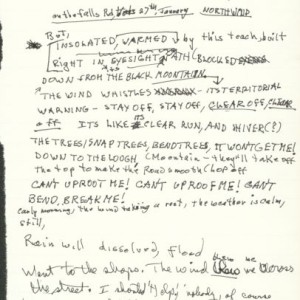 27th January NORTHWIND
But,
INSOLATED, WARMED by this teach, built
RIGHT IN EYESIGHT PATH (BLOCKED
DOWN FROM THE BLACK MOUNTAIN,
THE WIND WHISTLES ITS TERRITORIAL
WARNING - STAY OFF, STAY OFF, CLEAR OFF, CLEAR
off ITS LIKE ITS CLEAR RUN, AND HIVER(?)
THE TREES/SNAP TREES, BEND TREES, IT WONT GET ME!
DOWN TO THE LOUGH (Mountain - they'll take off
the top to make the Road smooth (lop off
CAN'T UPROOT ME! CAN'T UPROOF ME! CAN'T
BEND, BREAK ME!
early morning, the wind taking a rest, the weather is calm,
still,
Rain will dissolved, flood
Went to the shops. The wind blew me across
the street. I should nobody, of course